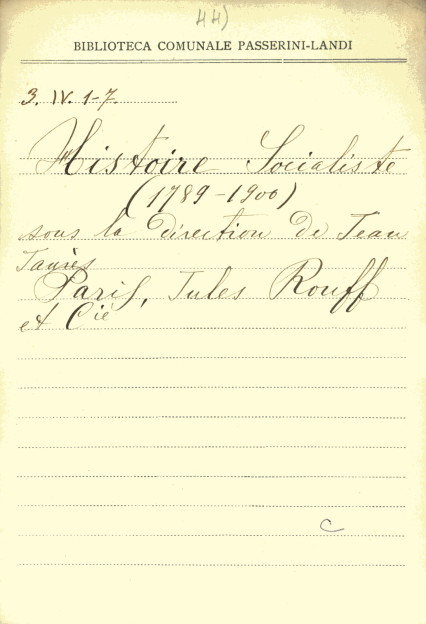 44)
BIBLIOTECA COMUNALE PASSERINI-LANDI
3. IV. 1-7.
Histoire Socialiste
(1789-1900)
sous la direction de Jean
Jaurès
Paris, Jules Rouff
et Cie
C